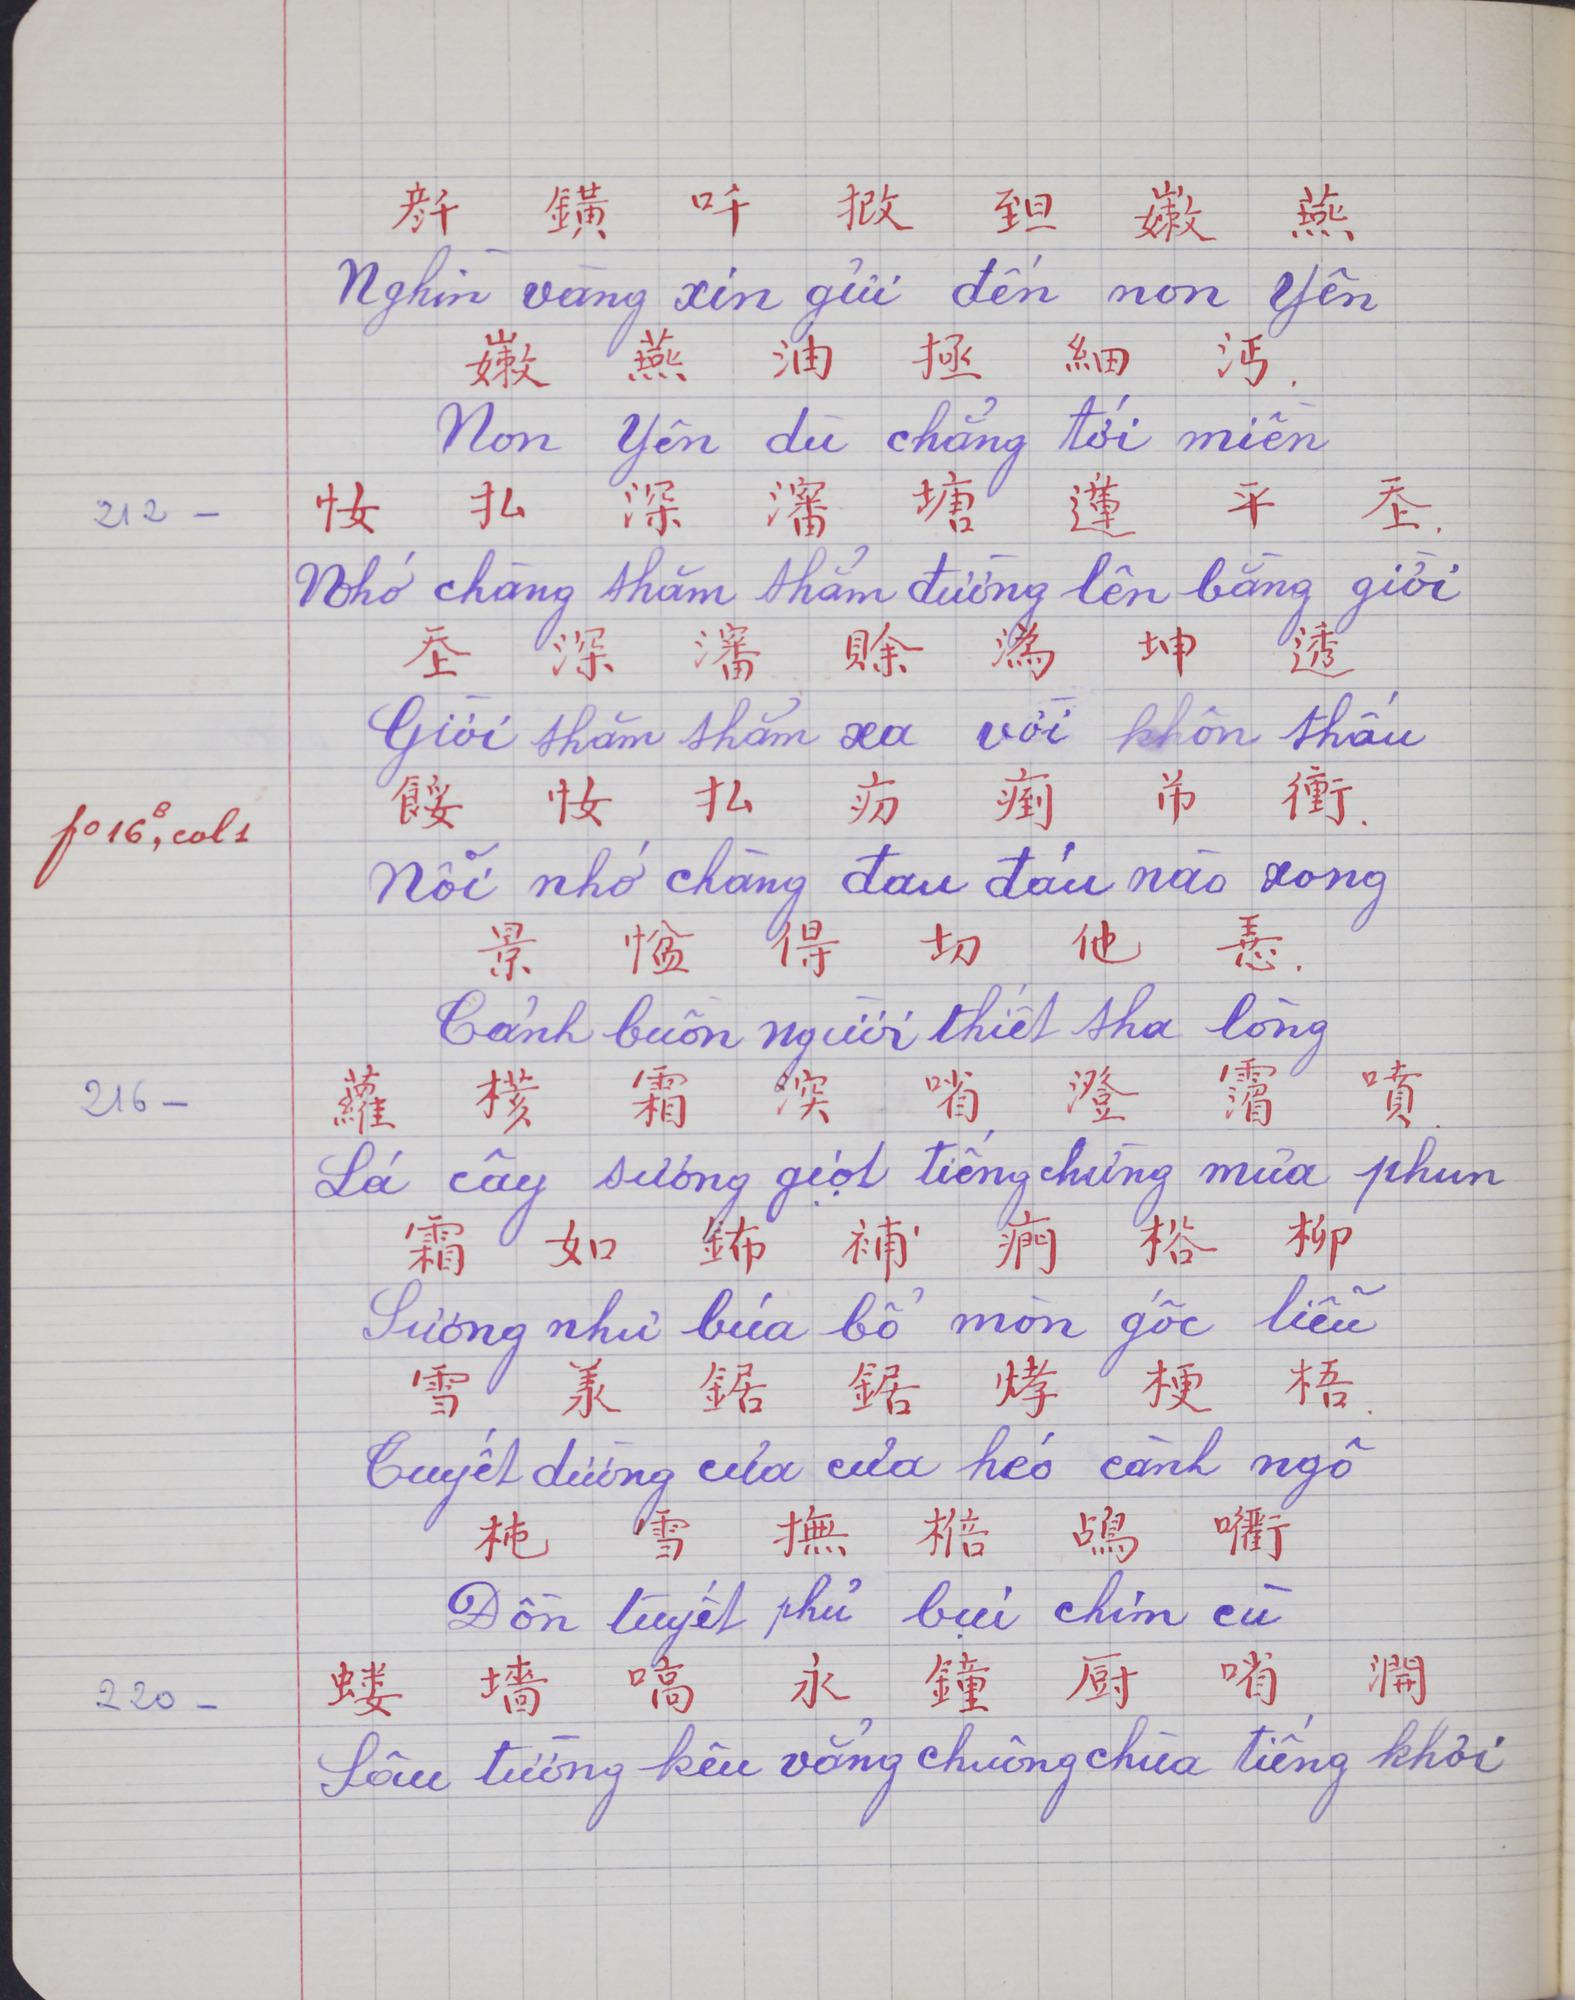 𠦳 鐄 吀 𢭮 𦤾 嫩 燕
Nghìn vàng xin gửi đến non Yên
嫩 燕 油 拯 細 沔.
Non Yên dù chẳng tới miền
212 – 𢖵 払 深 瀋 塘 蓮 平 𡗶.
Nhớ chàng thăm thẳm đường lên bằng giời
𡗶 深 瀋 賒 潙 坤 透
Giời thăm thẳm xa vời khôn thấu
餒 𢖵 払 疠 𤴬 吊 衝.
fº 16ᴮ, col 1
Nỗi nhớ chàng đau đáu nào xong
景 㥪 得 切 他 𢚸.
Cảnh buồn người thiết tha lòng
216 – 蘿 核 霜 湥 㗂 澄 𩆍 噴.
Lá cây sương giọt tiếng chừng mưa phun
霜 如 鈽 補 𤷱 㭲 柳
Sương như búa bổ mòn gốc liễu
雪 羕 鋸 鋸 烤 梗 梧.
Tuyết dường cưa cưa héo cành ngô
杶 雪 撫 棓 鴣 㘗
Dồn tuyết phủ bụi chim cù
220 – 蝼 墻 嗃 永 鐘 厨 㗂 濶
Sâu tường kêu vẳng chuông chùa tiếng khơi